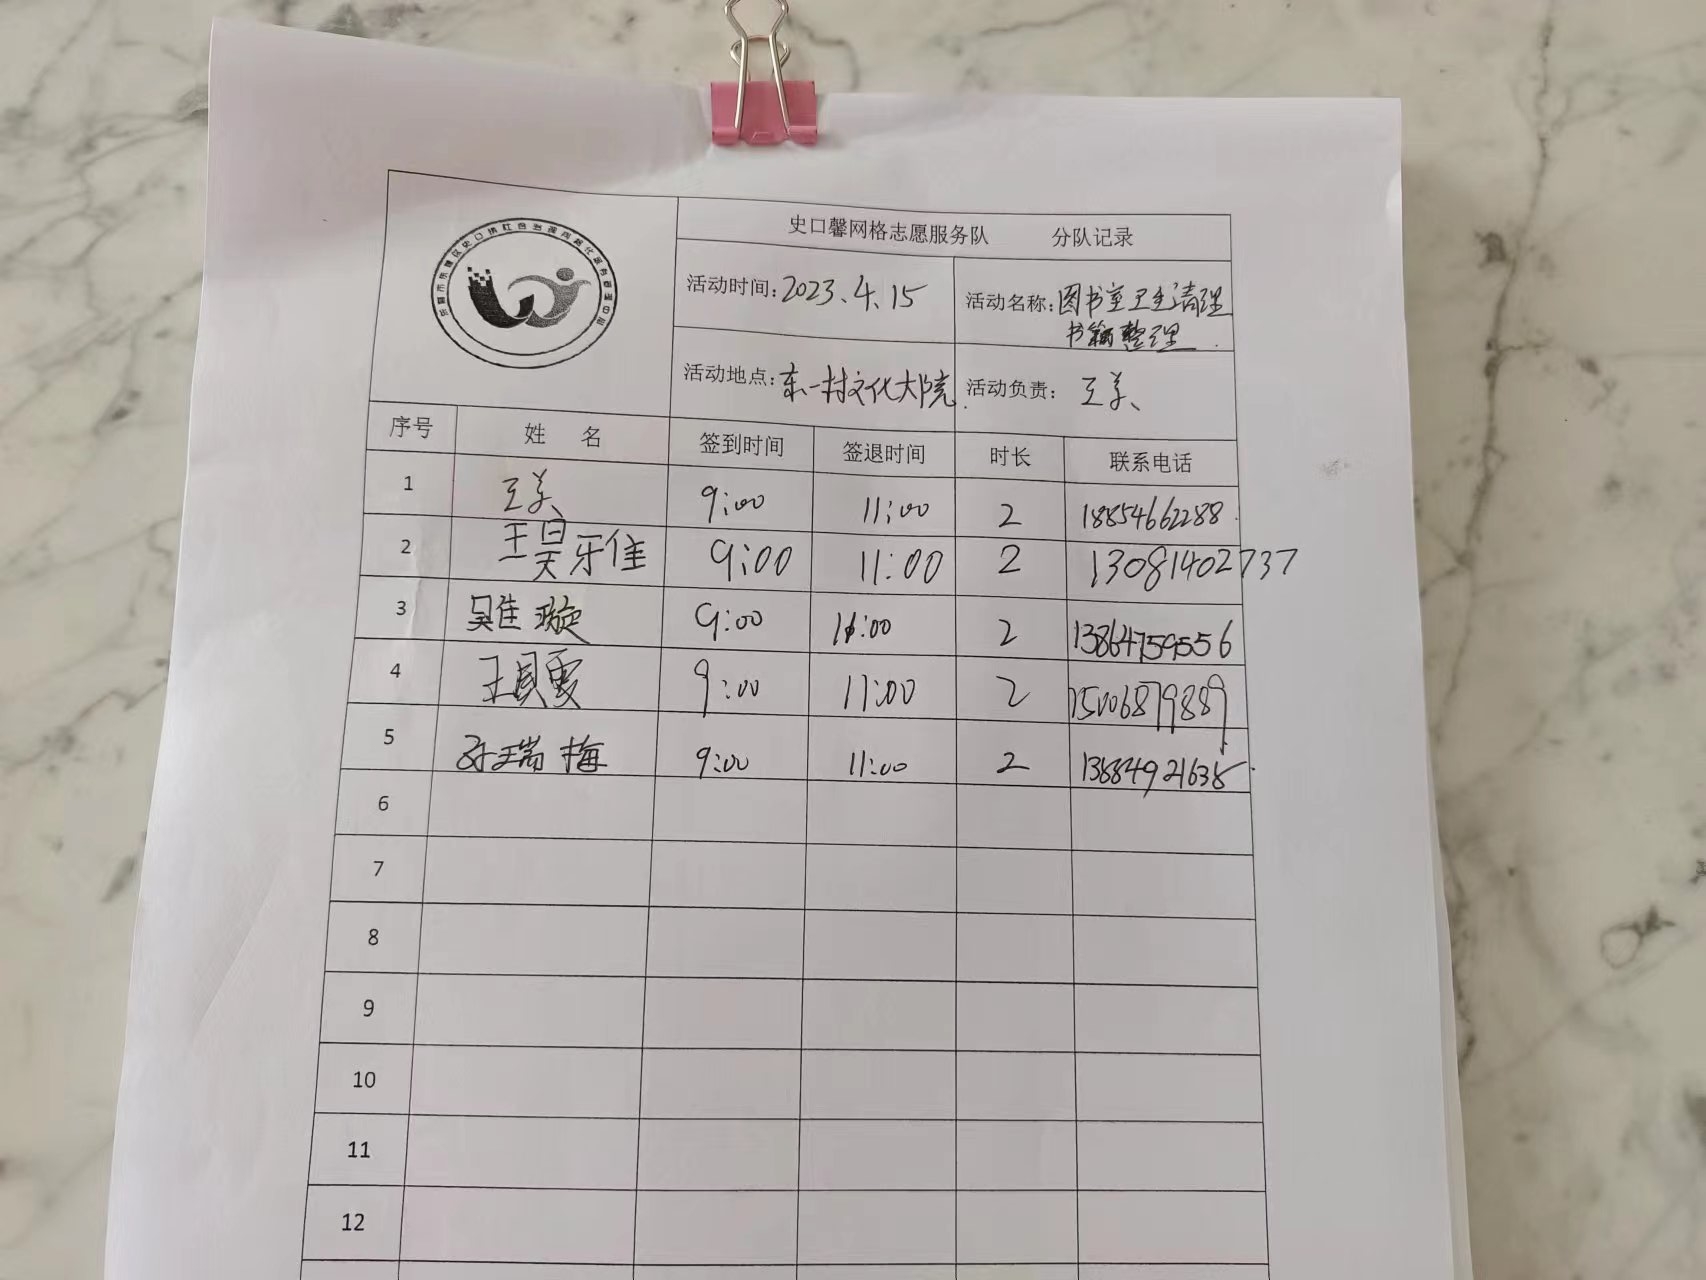 史口馨网格志愿服务队 分队记录
活动时间:2023.4.15
活动名称:图书室卫生清理
书籍整理
活动地点:东一村文化大院
活动负责: 王美
序号 姓 名 签到时间 签退时间 时长 联系电话
1 王美 9:00 11:00 2 18854662288
2 王昊牙佳 9:00 11:00 2 13081402737
3 吴佳璇 9:00 11:00 2 13864759556
4 王贝雯 9:00 11:00 2 15006879889
5 孙瑞梅 9:00 11:00 2
6
7
8
9
10
11
12